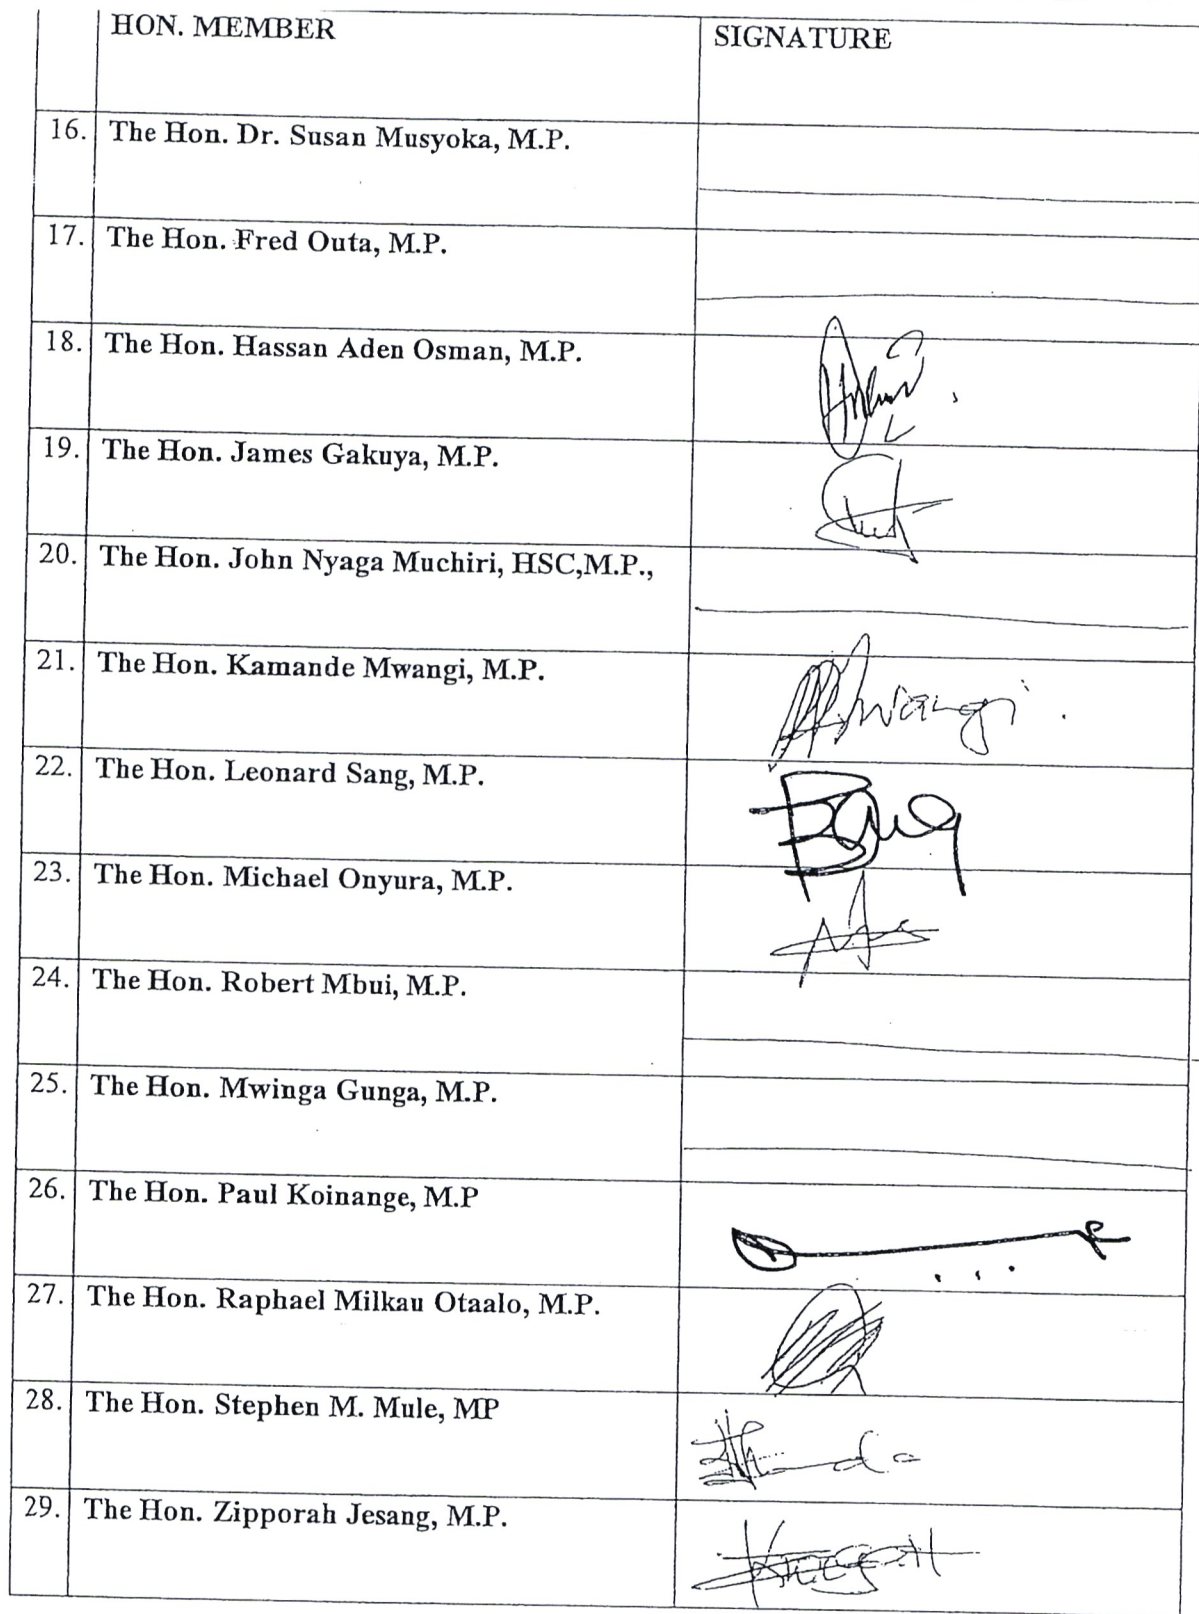 HON. MEMBER SIGNATURE
16. The Hon. Dr. Susan Musyoka, M.P.
17. The Hon. Fred Outa, M.P.
18. The Hon. Hassan Aden Osman, M.P.
19. The Hon. James Gakuya, M.P.
20. The Hon. John Nyaga Muchiri, HSC,M.P.,
21. The Hon. Kamande Mwangi, M.P. Mwangi
22. The Hon. Leonard Sang, M.P.
23. The Hon. Michael Onyura, M.P.
24. The Hon. Robert Mbui, M.P.
25. The Hon. Mwinga Gunga, M.P.
26. The Hon. Paul Koinange, M.P
27. The Hon. Raphael Milkau Otaalo, M.P.
28. The Hon. Stephen M. Mule, MP
29. The Hon. Zipporah Jesang, M.P.